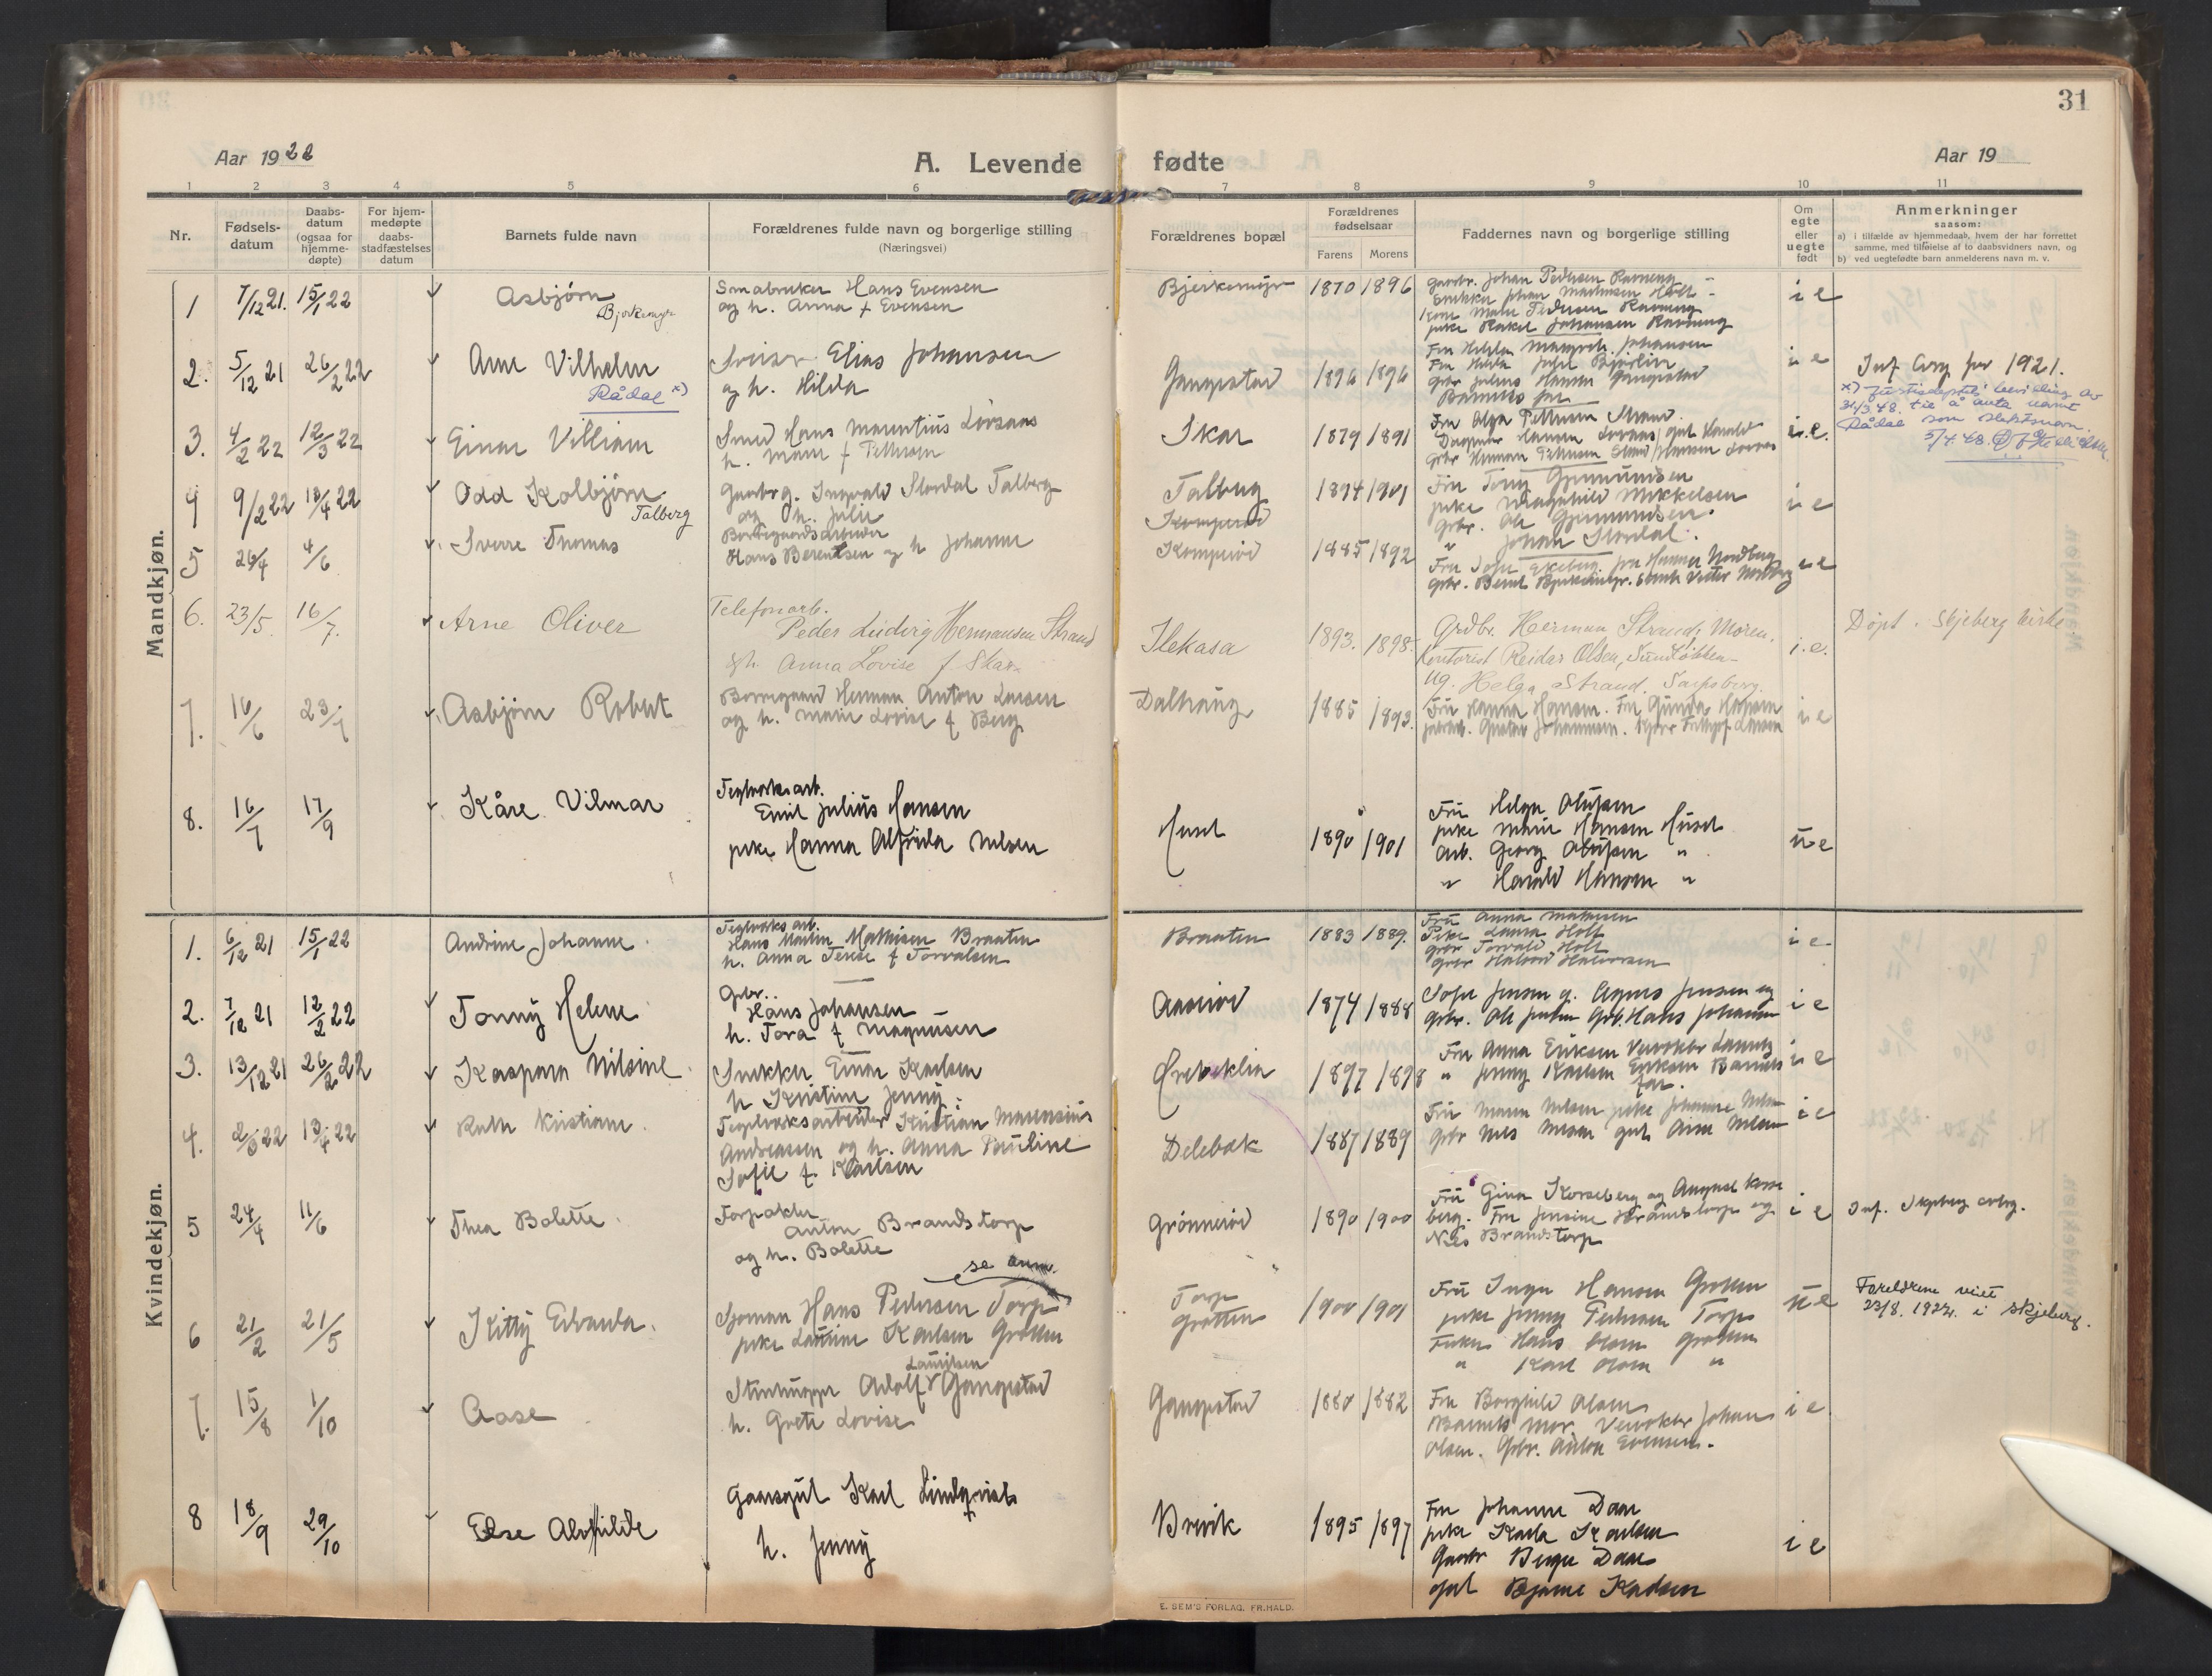 31
Aar 1922
A. Levende fødte
Aar 19
1 2 3 4 5 6 7 8 9 10 11
Nr.
Fødsels-
datum
Daabs-
datum
(ogsaa for
hjemme-
døpte)
For hjem-
medøpte
daabs-
stadfæstelses
datum
Barnets fulde navn
Forældrenes fulde navn og borgerlige stilling
(Næringsvei)
Forældrenes bopæl
Forældrenes
fødselsaar
Farens Morens
Faddernes navn og borgerlige stilling
Om
egte
eller
uegte
født
Anmerkninger
saasom:
a) i tilfælde av hjemmedaab, hvem der har forrettet
samme, med tilføielse af to daabsvidners navn, og
b) ved uegtefødte barn anmelderens navn m. v.
Mandkjøn.
1 7/12 21. 15/1 22 Asbjørn
Bjerkemyr
Smabruker Hans Evensen
og h. Anna f Evensen
Bjerkemyr 1870 1896
Gaardbr. Johan Pedersen Ravneng
Snekker Johan Martinsen Holt
Kone Marie Pedersen Ravneng
pike Rakel Johansen Ravneng
i e
2. 5/12 21 26/2 22 Arne Vilhelm
Rådal x)
Elias Johansen
og h. Hilda
Gangestad 1896 1896
Fru Hilda Margreth Johansen
Gbr Julius Hansen Gangestad
Barnets far
i e
Inf Corg for 1921.
x) Justisdept's bevilling av
31/3.48. til å anta navnet
Rådal som slektsnavn.
5/4.48.
3. 4/2 22 12/3 22 Einar William
Smed Hans Marentius Lövaas
h. Marie f Pettersen
Skar 1879 1891
Fru Olga Pettersen Strand.
Dagmar Hansen Lovaas, gut Harald
Gbr Herman Pettersen Strand, Johansen Lovaas
i.e.
4 9/2 22 18/4 22 Odd Kolbjørn
Talberg
Gaardbrg. Ingvald Stordal Talberg
og h. Julie
Talberg 1894 1901
Komperød
Fru Tony Gjermundsen
pike Ragnhild Mikkelsen
Gbr. Ole Gjermundsen.
" Johan Stordal.
i e
5 26/4 4/6 Sverre Thomas
Borregaardsarbeider
Hans Berentsen og h Johanne
Komperød 1885 1892
Fru Sofie Ekeberg. fru Hanna Nordberg
Gbr. Bernt Bjerkemyr.
i e
6. 23/5 16/7. Arne Oliver
Telefonarb.
Peder Ludvig Hermansen Strand
& h. Anna Lovise f Skar
Ilekasa 1893. 1898.
Grdbr. Herman Strand; Moren.
Kontorist Reidar Olsen, Sundløkken
Ug. Helga Strand. Sarpsborg.
i.e.
Døpt i Skjeberg kirke
7. 16/6 23/7 Asbjørn Robert
Borregaard Herman Anton Larsen
og h. Marie Lovise f Berg
Dalhaug 1885 1893.
Fru Hanna Hansen. Fru Gunda Hansen
fabrarb. Gustav Johannesen. Gbr Fritjof Larsen
i e
8. 16/7 17/9 Kåre Vilmar
Teglverksarb.
Emil Julius Hansen
pike Hanna Alfrida Nilsen
Huset 1890 1901
Fru Helga Olufsen
pike Marie Hansen Huset
Arb. Georg Olufsen "
" Harald Hansen "
u e
Kvindekjøn.
1. 6/12 21 15/1 22 Andrine Johanne
Teglverksarb.
Hans Martin Mathisen Braaten
h. Anna Terese f Torvalsen
Braaten 1883 1889.
Fru Anna Mathisen
Pike Laura Holt
gbr Torvald Holt
gbr Halvord Halvorsen
i e
2. 7/12 21 12/2 22 Tonny Helene
Gbr.
Hans Johansen
h. Tora f Magnusen
Aaserød 1874 1888
Sofie Jensen g. Agnes Jensen og
gbr. Ole Jensen Gbr. Hans Johansen
i e
3. 13/12 21 26/2 22 Kaspara Nilsine
Snekker Einar Karlsen
h Kristine Jenny
Ørebeklia 1897 1898
Fru Anna Eriksen
" Jenny Karlsen Eriksen Barnets
far.
i e
4. 2/3 22 13/4 22 Ruth Kristiane
Teglverksarbeider Kristian Marensius
Andreassen og h. Anna Pauline
Sofie f. Karlsen
Delebæk 1887 1889
Fru Maren Nilsen pike Johanne Nilsen
Gbr Nils Nilsen gut Arne Nilsen
i e
5 24/4 11/6 Thea Bolette
Forpakter
Anton Brandstorp
og h. Bolette
Grønnerød 1890 1900
Fru Gina Korseberg og August Korse
berg. Fru Jensine Brandstorp og
Nils Brandstorp
i e
Inf. Skjeberg
6 21/2 21/5 Kitty Edvarda.
se anm.
Sjøman Hans Pedersen Torp
pike Laurine Karlsen Grotten
Torp
Grotten 1900 1901
Fru Inga Hansen Grotten
pike Jenny Pedersen Torp
Fisker Hans Olsen Grotten
" Karl Olsen "
u e
Foreldrene viet
23/8. 1922. i Skjeberg.
7. 15/8 1/10 Aase
Lauritsen
Stenhugger Adolf Gangestad
h. Grete Lovise
Gangestad 1880 1882
Fru Borghild Olsen
Barnets mor. Johan
Olsen. Gbr. Anton Evensen.
i e
8 18/9 29/10 Else Alvhilde
Gaardsgut Karl Lindqvist
h. Jenny
Brevik 1895 1897
Fru Johanne Daae
pike Karla Karlsen
Gaardbr Birger Daae
gut Bjarne Karlsen
i e
E. SEM'S FORLAG. FR.HALD.